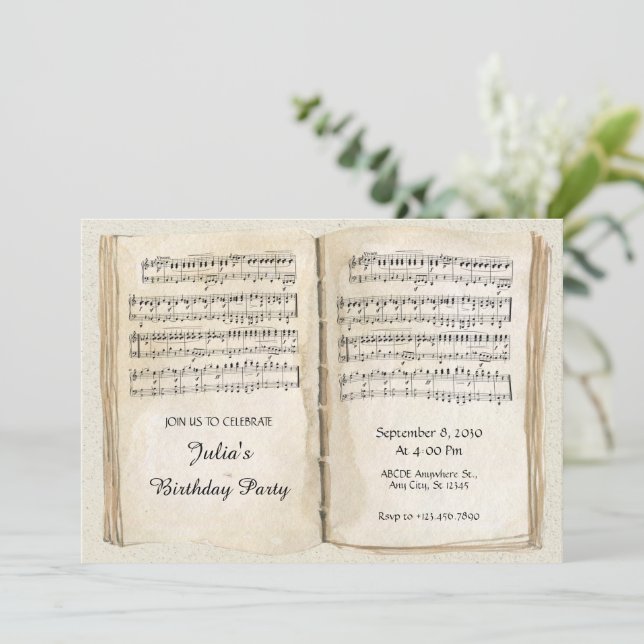 JOIN US TO CELEBRATE
Julia's
Birthday Party
September 8, 2030
At 4:00 Pm
ABCDE Anywhere St.,
Any City, St 12345
Rsvp to +123.456.7890